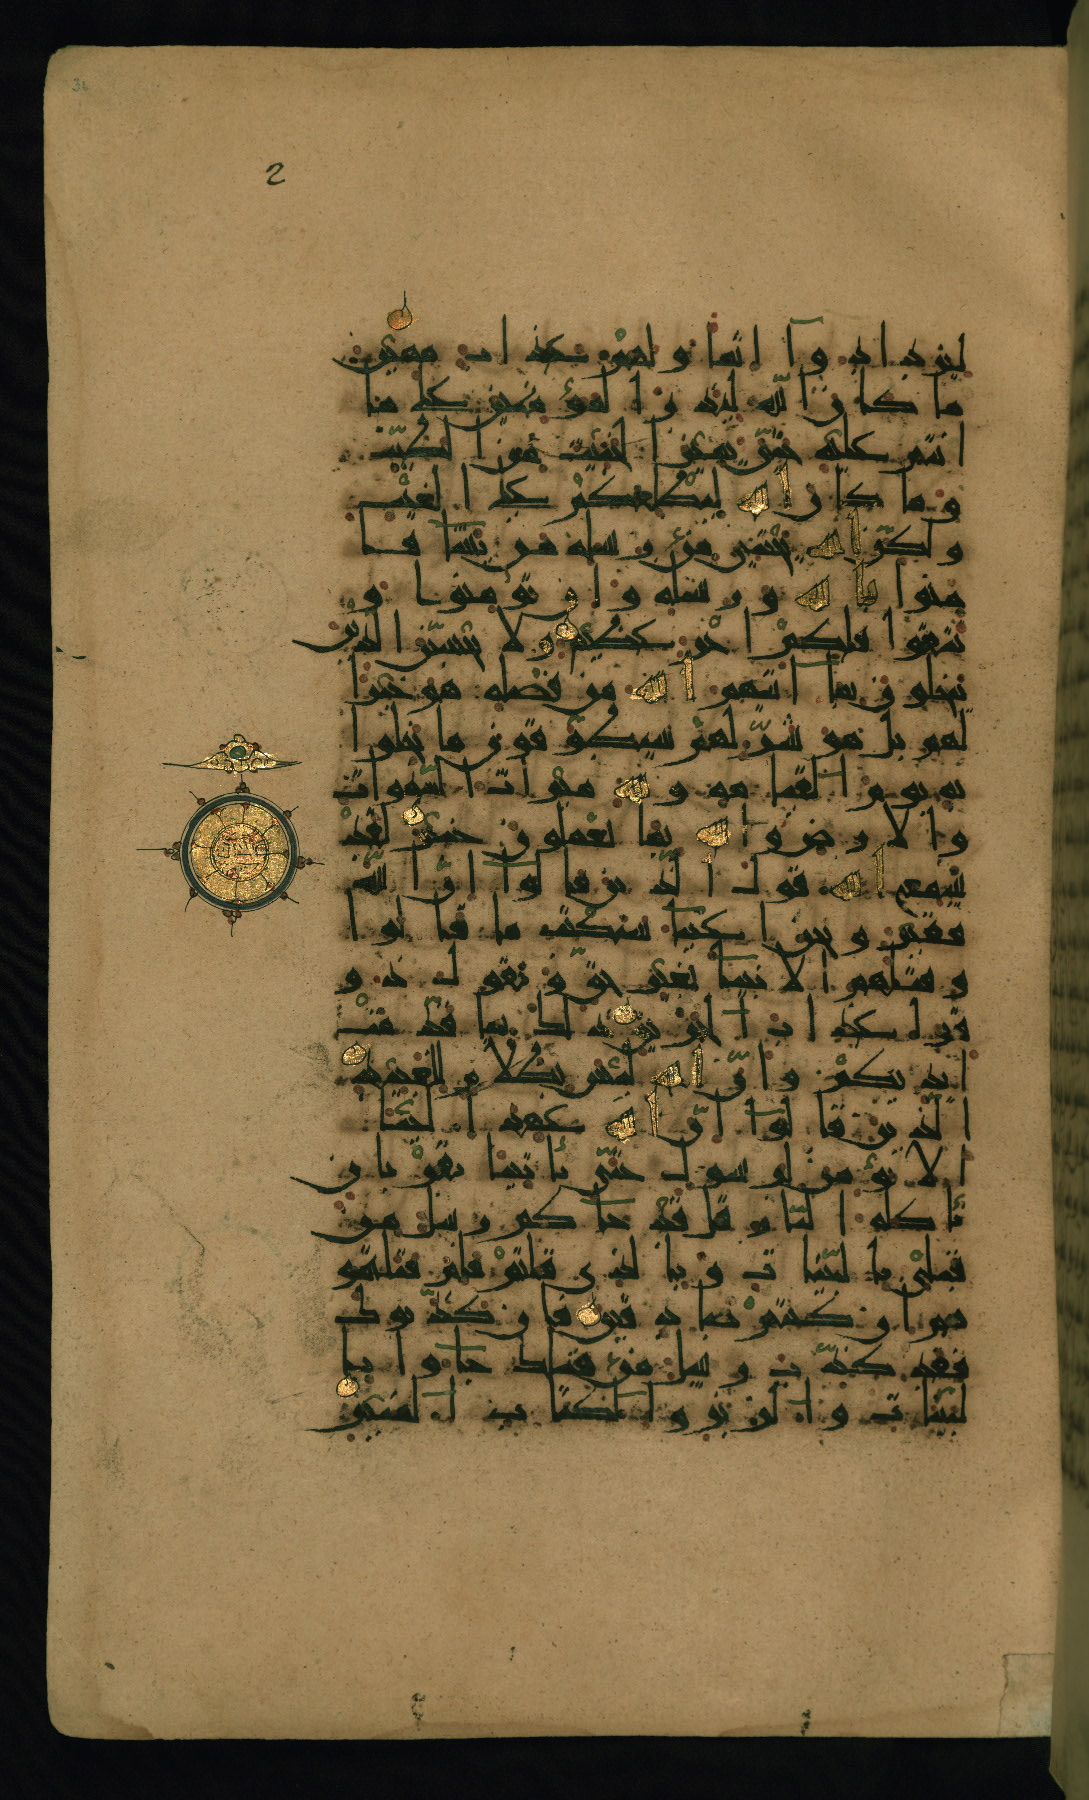 2
ليزدادوا اثما ولهم عذاب مهين
ما كان الله ليذر المؤمنين على ما
انتم عليه حتى يميز الخبيث من الطيب
وما كان الله ليطلعكم على الغيب
ولكن الله يجتبي من رسله من يشا فا
منوا بالله ورسله وان تؤمنوا و
تتقوا فلكم اجر عظيم ولا يحسبن الذين
يبخلون بما اتيهم الله من فضله هو خيرا
لهم بل هو شر لهم سيطوقون ما بخلوا
به يوم القيامه ولله ميراث السموات
والارض والله بما تعملون خبير لقد
سمع الله قول الذين قالوا ان الله
فقير ونحن اغنيا سنكتب ما قالوا
وقتلهم الانبيا بغير حق ونقول ذو
قوا عذاب الحريق ذلك بما قدمت
ايديكم وان الله ليس بظلام للعبيد
الذين قالوا ان الله عهد الينا
الا نؤمن لرسول حتى ياتينا بقربان
تاكله النار قل قد جاكم رسل من
قبلي بالبينات وبالذي قلتم فلم قتلتمو
هم ان كنتم صادقين فان كذبوك
فقد كذب رسل من قبلك جاوا با
لبينات والزبر والكتاب المنير